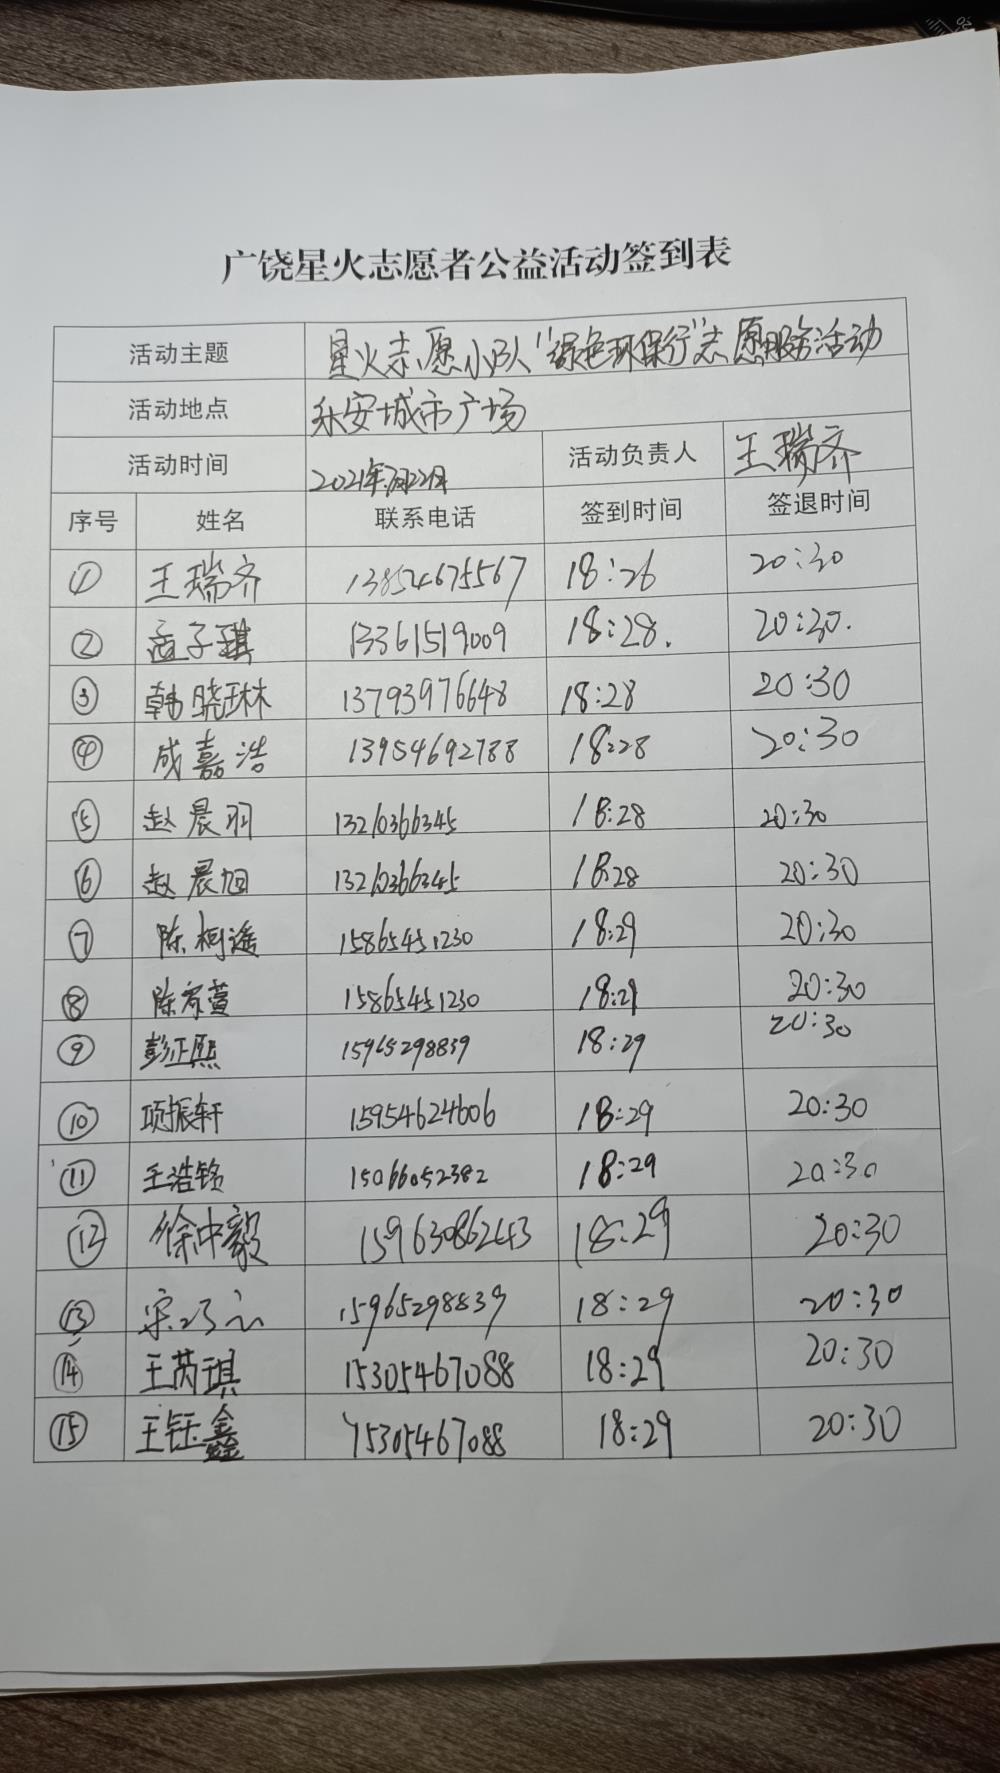 广饶星火志愿者公益活动签到表
活动主题 星火志愿小队“绿色环保行”志愿服务活动
活动地点 乐安城市广场
活动时间 2021年7月22日 活动负责人 王瑞齐
序号 姓名 联系电话 签到时间 签退时间
① 王瑞齐 13854675567 18:26 20:30
② 孟子琪 13361519009 18:28. 20:30.
③ 韩晓琳 13793976648 18:28 20:30
④ 成嘉浩 13954692788 18:28 20:30
⑤ 赵晨羽 13210366345 18:28 20:30
⑥ 赵晨旭 13210366345 18:28 20:30
⑦ 陈柯遥 15865451230 18:29 20:30
⑧ 陈家萱 15865451230 18:29 20:30
⑨ 彭正熙 15965298839 18:29 20:30
⑩ 项振轩 15954624606 18:29 20:30
⑪ 王浩铭 15066052382 18:29 20:30
⑫ 徐中毅 159630862443 18:29 20:30
⑬ 15965298839 18:29 20:30
⑭ 王芮琪 15305467088 18:29 20:30
⑮ 王钰鑫 15305467088 18:29 20:30